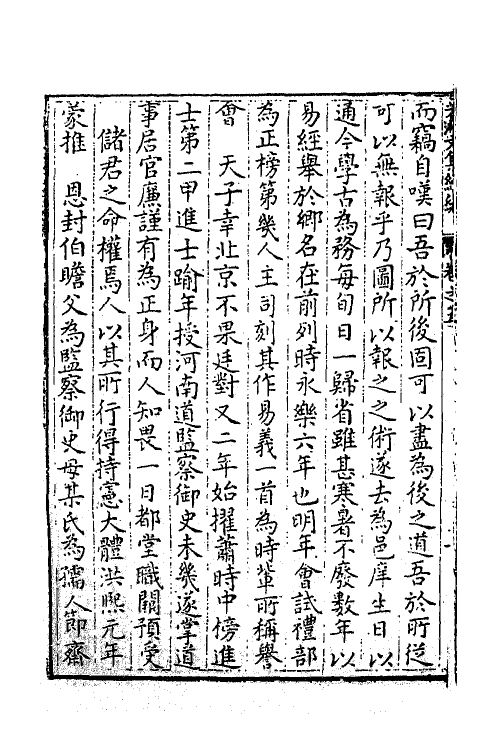 而竊自嘆曰吾於所後固可以盡為後之道吾於所從
可以無報乎乃圖所以報之之術遂去為邑庠生日以
通今學古為務每旬日一歸省雖甚寒暑不廢數年以
易經舉於鄉名在前列時永樂六年也明年會試禮部
為正榜第幾人主司刻其作易義一首為時輩所稱譽
會 天子幸北京不果廷對又二年始擢蕭時中榜進
士第二甲進士踰年授河南道監察御史未幾遂掌道
事居官廉謹有為正身而人知畏一日都堂職闕預受
儲君之命權焉人以其所行得持憲大體洪熙元年
蒙推 恩封伯瞻父為監察御史母某氏為孺人節齋